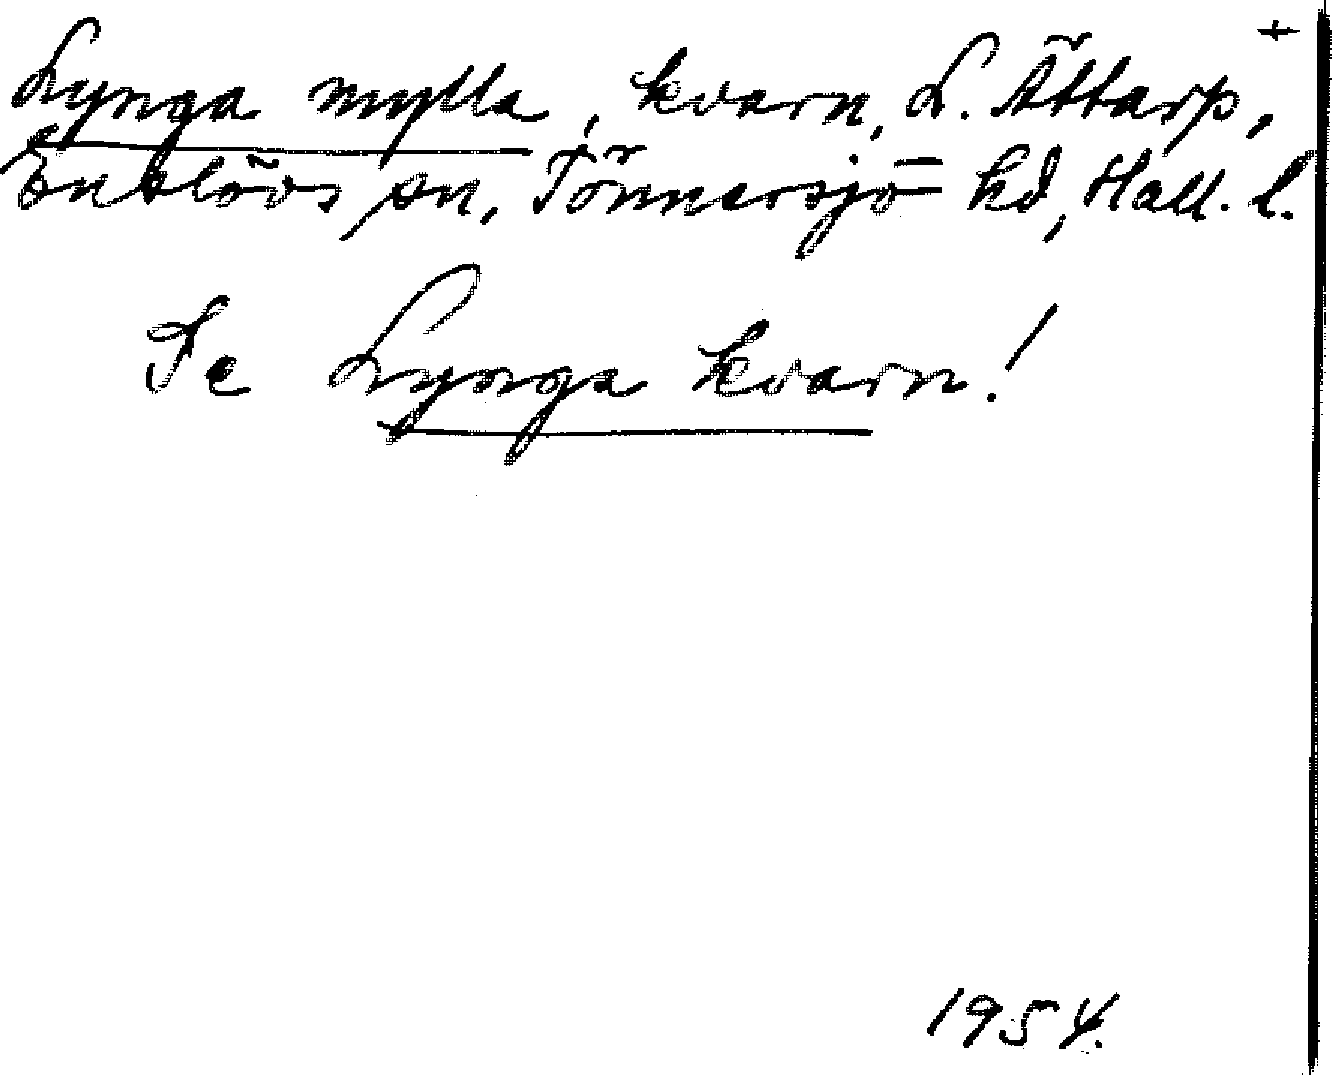 +
Lynga mylla, kvarn, L. Ättarp,
Enslövs sn, Tönnersjö hd, Hall. l.
Se Lynga kvarn!
1954.